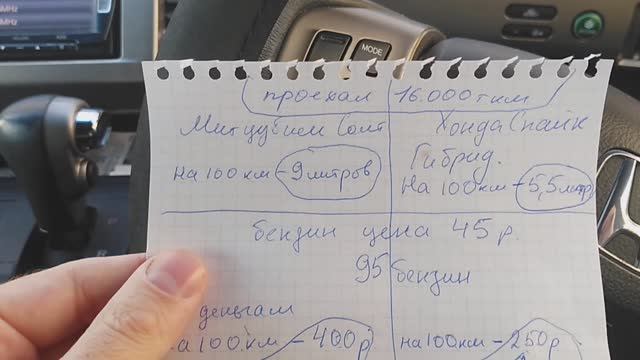 MHz
MHz
MODE
проехал 16.000 т км
Митцубиси Солт
Хонда Спайк
Гибрид.
на 100 км - 9 литров
На 100 км - 5,5 литр
бензин цена 45 р.
95 бензин
деньгам
на 100 км - 400 р
на 100 км - 250 р